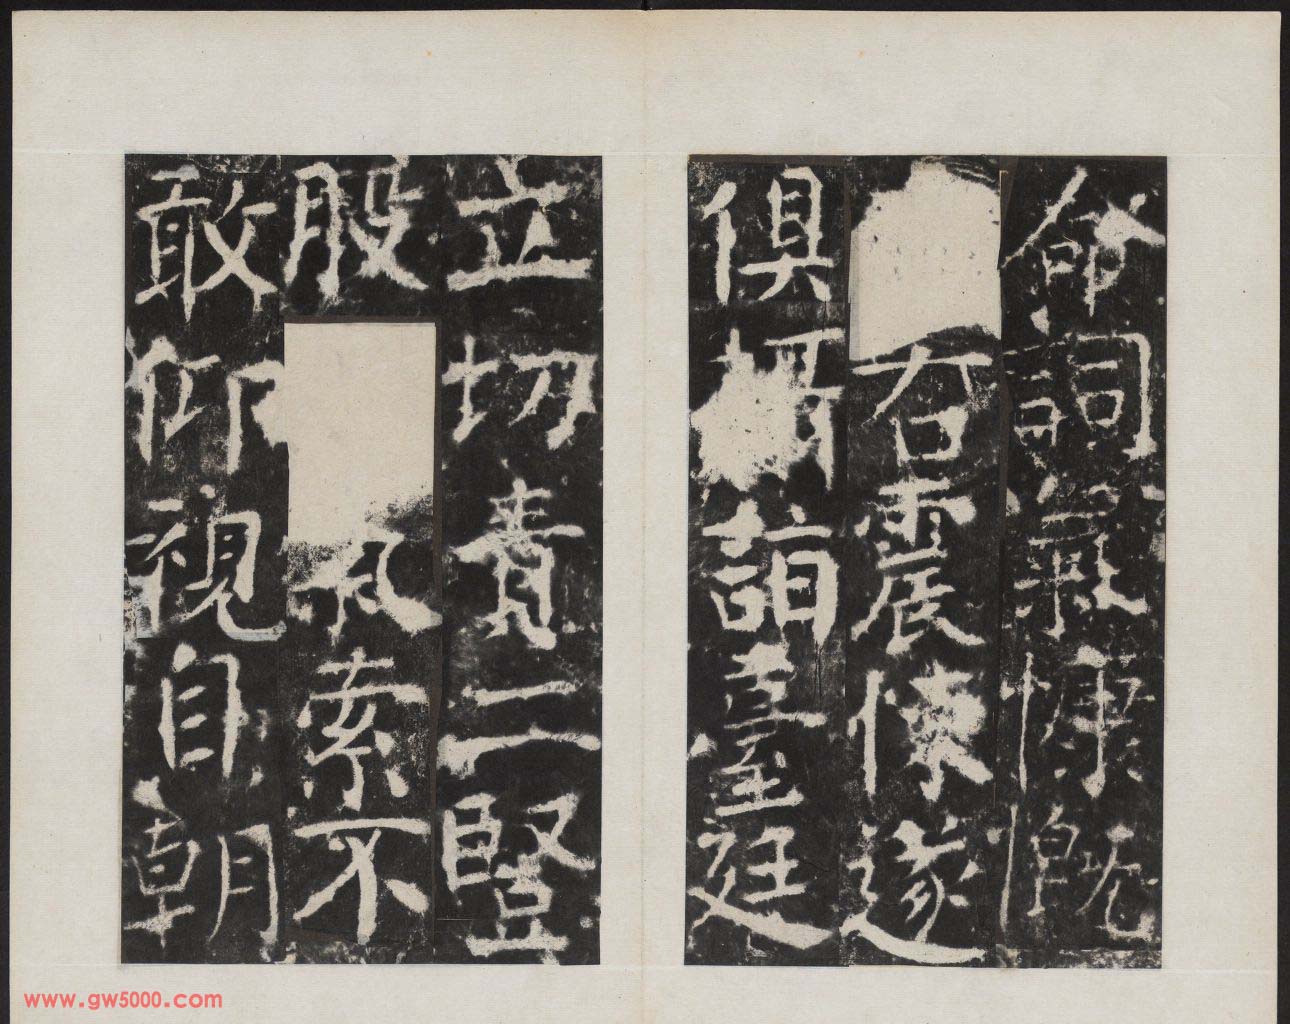 命詞氣慷慨
右震悚遂
俱詣臺廷
立切責二豎
股索不
敢仰視自朝
www.gw5000.com